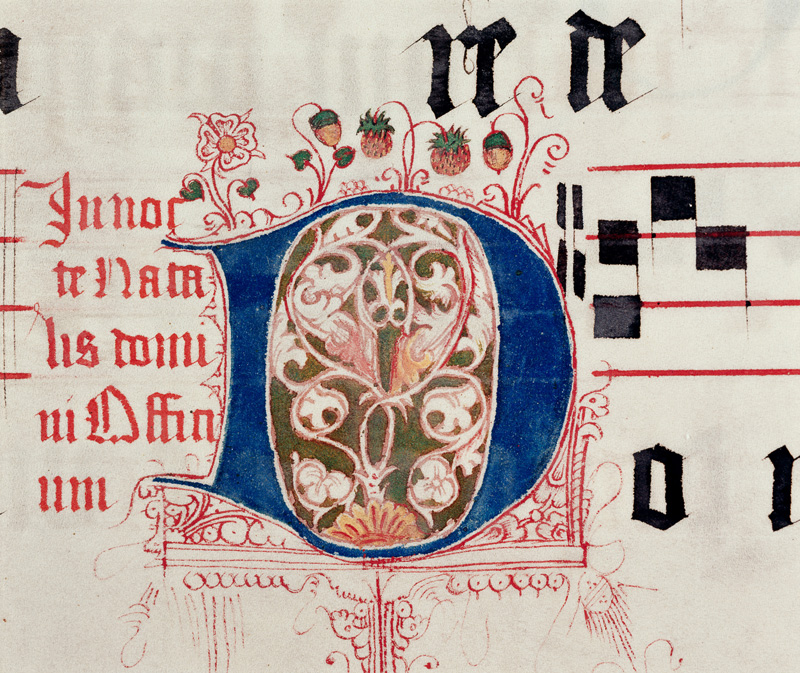 re de
In noc
te Nata
lis domi
ni Offici
um
D o